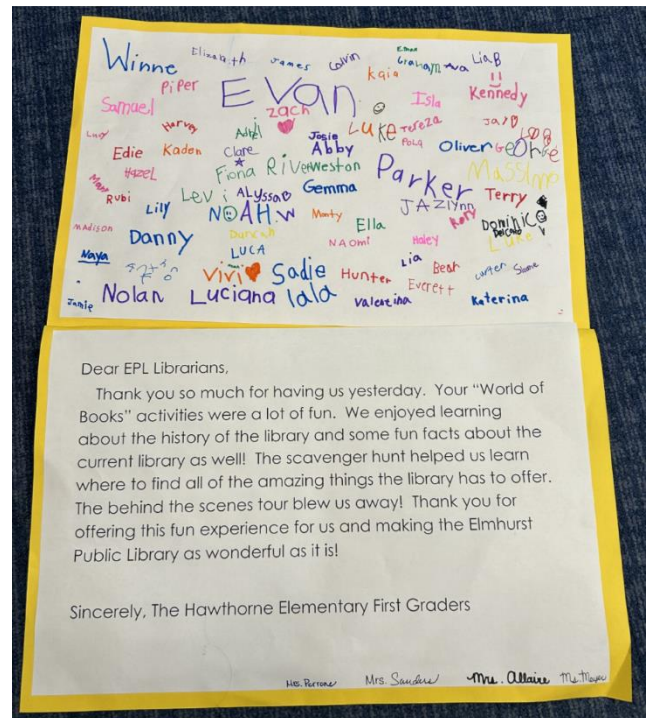 Winne Elizabeth James Calvin Graham Ava Lia B
Piper Evan Kaia Isla Kennedy
Samuel Zach
Lucy Harvey Josie Luke Tereza Pola Jay
Edie Kaden Clare Abby Oliver George
Hazel Fiona River Weston Parker Massimo
Rubi Levi ALyssa Gemma Terry
Lilly NOAH.W Monty JAZlynn Rory
madison Danny Duncan Ella Dominic
Naya LUCA NAOmi Haley Luke
Vivi Sadie Hunter Lia Bear carter
Jamie Nolan Luciana lala Valentina Everett Katerina
Dear EPL Librarians,
Thank you so much for having us yesterday. Your “World of
Books” activities were a lot of fun. We enjoyed learning
about the history of the library and some fun facts about the
current library as well! The scavenger hunt helped us learn
where to find all of the amazing things the library has to offer.
The behind the scenes tour blew us away! Thank you for
offering this fun experience for us and making the Elmhurst
Public Library as wonderful as it is!
Sincerely, The Hawthorne Elementary First Graders
Mrs. Perrone Mrs. Sanders Mrs. Allaire Ms. Meyer